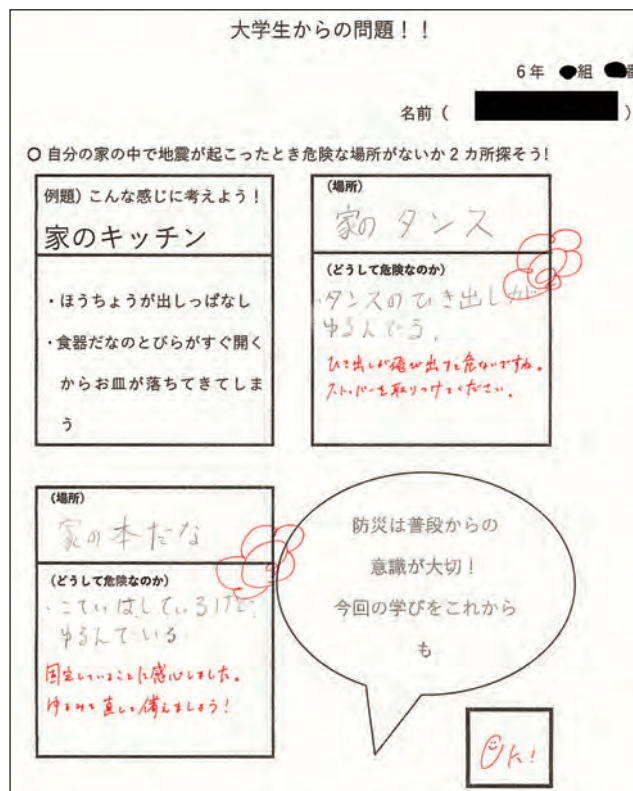 大学生からの問題！！
6年 組 番
名前（ ）
〇 自分の家の中で地震が起こったとき危険な場所がないか2カ所探そう!
例題) こんな感じに考えよう！
家のキッチン
・ほうちょうが出しっぱなし
・食器だなのとびらがすぐ開く
からお皿が落ちてきてしま
う
(場所)
家の タンス
(どうして危険なのか)
・タンスのひき出しが
ゆるんでいる。
ひき出しが飛び出すと危ないですね。
ストッパーを取りつけてください。
(場所)
家の本だな
(どうして危険なのか)
・こていはしているけど、
ゆるんでいる
固定していることに感心しました。
ゆるみを直して備えましょう！
防災は普段からの
意識が大切！
今回の学びをこれから
も
OK!